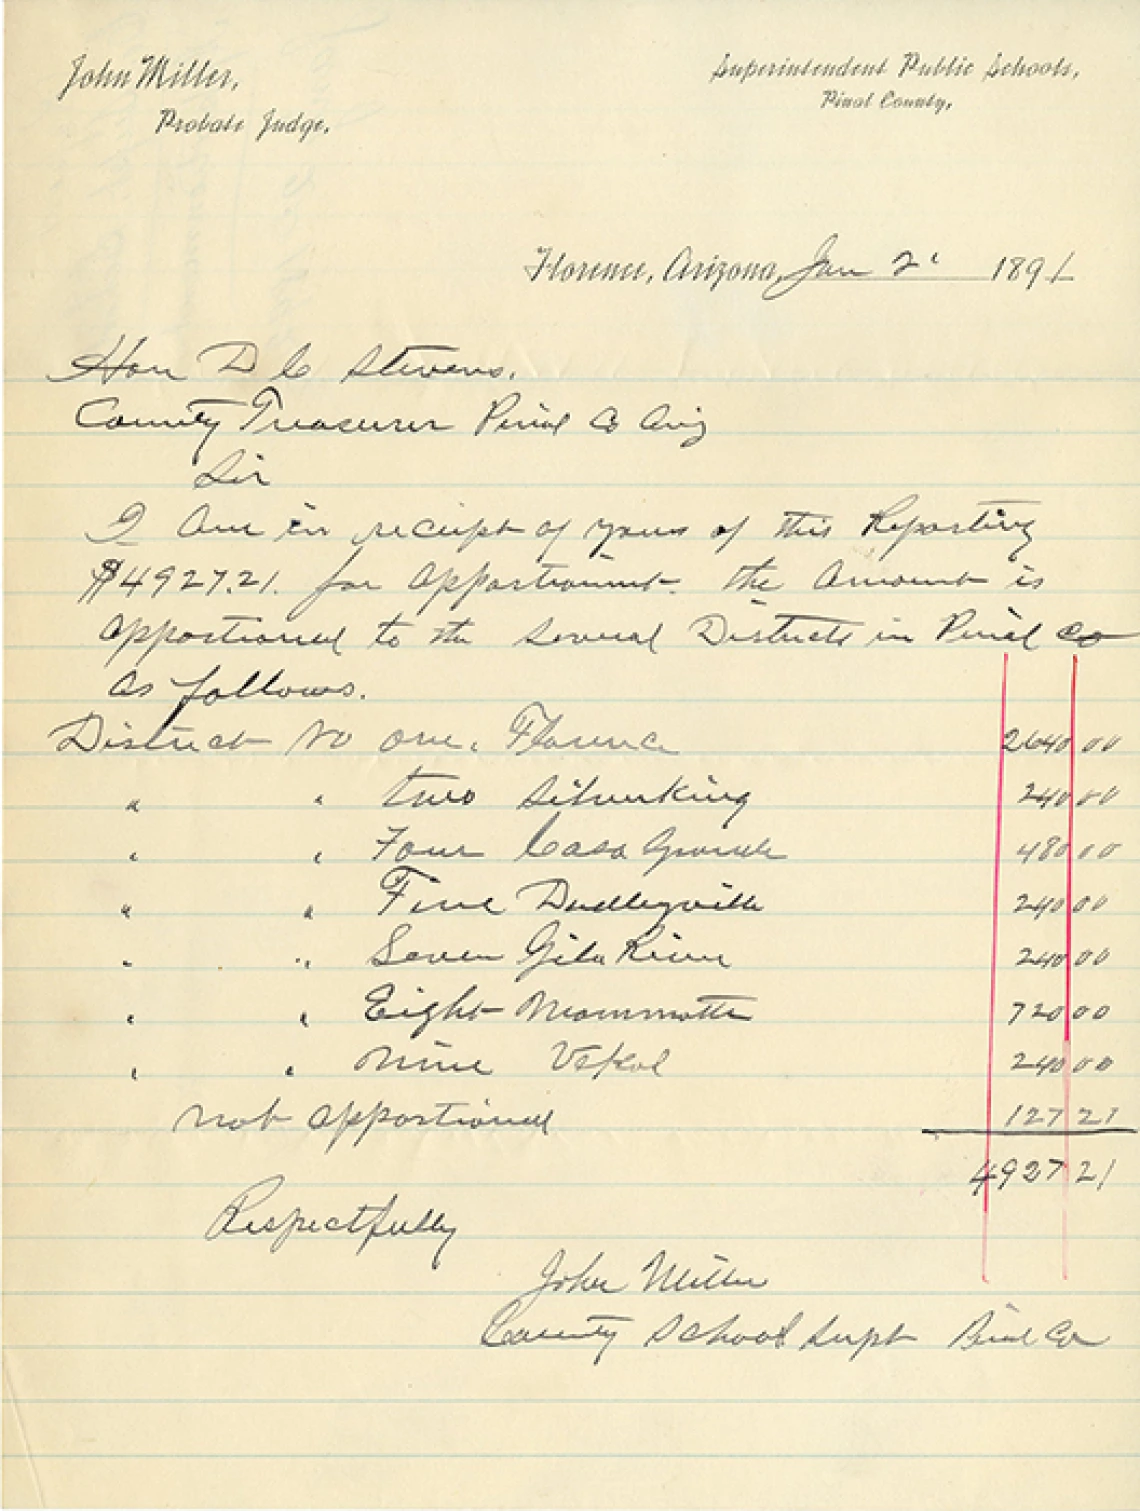 John Miller,
Probate Judge.
Superintendent Public Schools,
Pinal County,
Florence, Arizona, Jan 2 1891
Hon D C Stevens.
County Treasurer Pinal Co Ariz
Sir
I am in receipt of yours of this Reporting
$4927.21. for apportionment. the amount is
apportioned to the several Districts in Pinal Co
as follows.
District No one. Florence 2640 00
" " two Silverking 240 00
" " Four Casa Grande 480 00
" " Five Dudleyville 240 00
" " Seven Gila River 240 00
" " Eight Mammoth 720 00
" " Nine Vekol 240 00
not apportioned 127 21
4927 21
Respectfully
John Miller
County School Supt Pinal Co